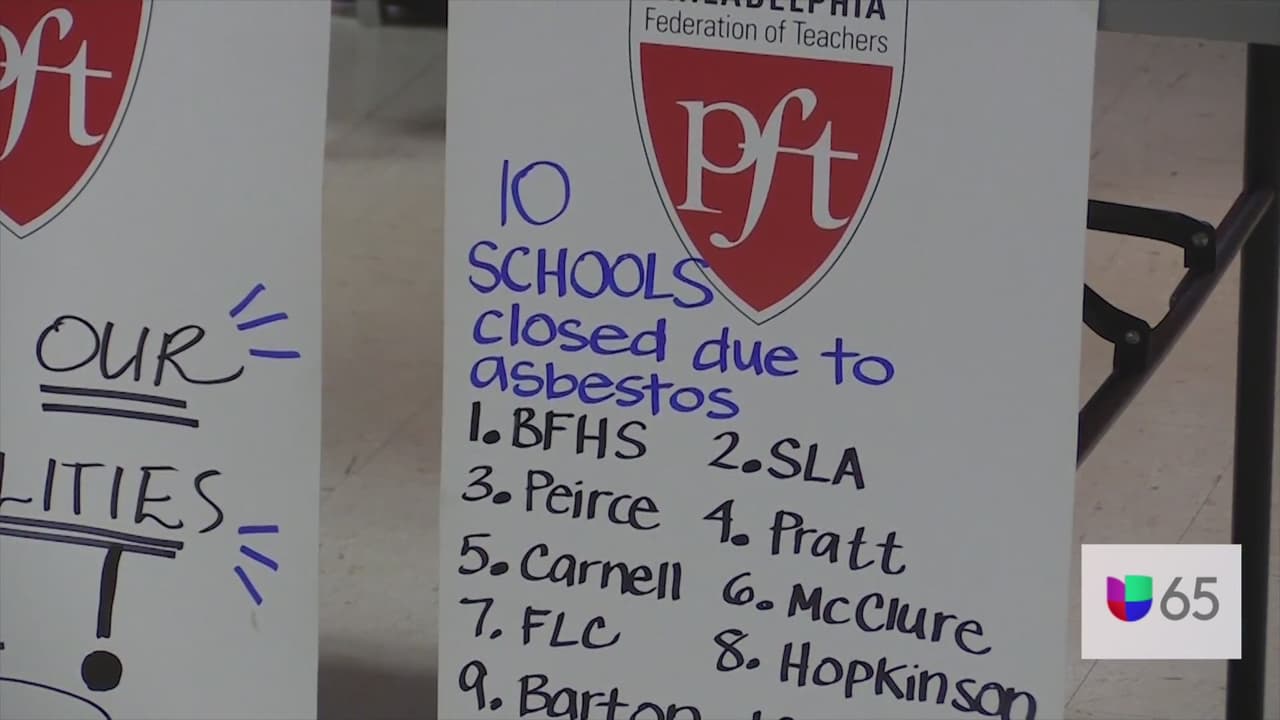 pft
OUR
LITIES
!
PHILADELPHIA
Federation of Teachers
pft
10
SCHOOLS
closed due to
asbestos
1. BFHS 2. SLA
3. Peirce 4. Pratt
5. Carnell 6. McClure
7. FLC 8. Hopkinson
9. Barton
65